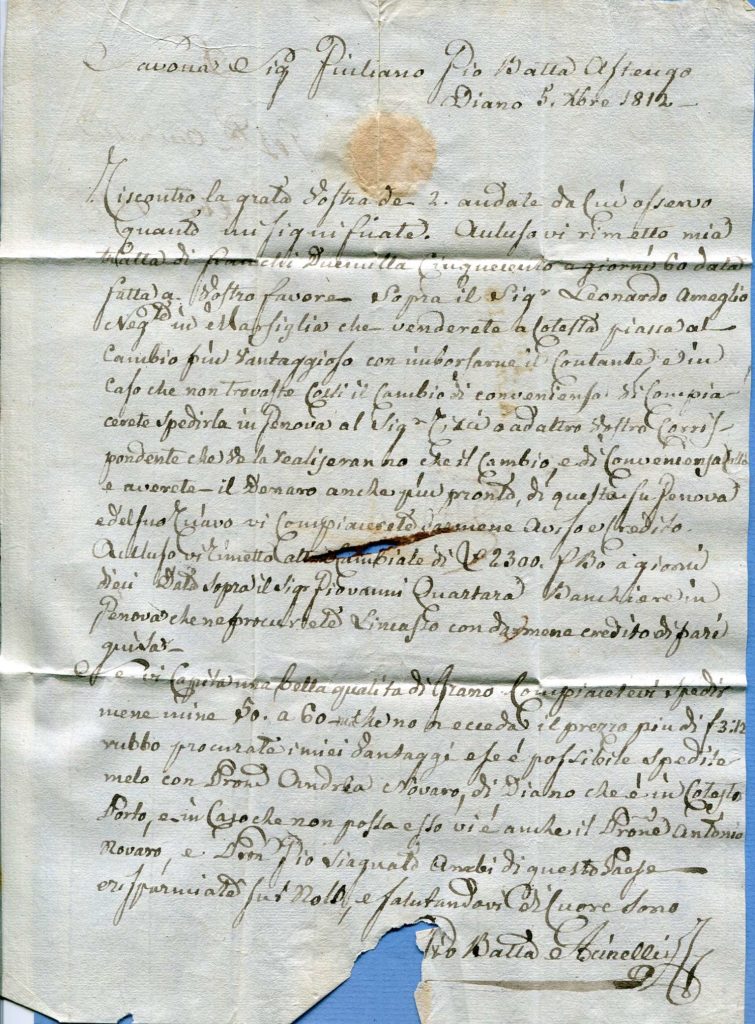 Savona Sig.r Giuliano Gio Batta Astengo
Diano 5. Xbre 1812
Riscontro la grata Vostra de 2. andate da cui osservo
quanto mi significate. Acluso vi rimetto mia
tratta di franchi Duemilla Cinquecento a giorni 60 data
fatta a Vostro favore Sopra il Sig.r Leonardo Ameglio
Neg.te in Marsiglia che venderete a Cotesta piassa al
Cambio più Vantaggioso con imborsarne il Contante, e in
Caso che non trovaste Costì il Cambio di conveniensa vi Compia
cerete spedirla in Genova al Sig.r o ad altro Vostro Corris
pondente che ve la realiseranno che il Cambio, e di Conveniensa
e averete il Denaro anche più pronto, di questa su Genova
e del suo vi Compiacerete darmene Aviso e Credito.
Acluso vi rimetto altra Cambiale di 2300. a giorni
dieci Data sopra il Sig.r Giovanni Quartara Banchiere in
Genova che ne procurerete Lincasso con darmene credito di pari
Se vi Capita una bella qualità di Grano Compiacetevi spedir
mene mine 50. a 60 che non ecceda il prezzo più di f 3:12
rubbo procurate i miei Vantaggi e se è possibile spedite
melo con Pron.e Andrea Novaro, di Diano che è in Cotesto
Porto, e in Caso che non possa esso vi è anche il Prone Antonio
Novaro, e Pron.e Gio Ambi di questo Paese
e risparmiate sui Noli, e salutandovi di Cuore sono
Gio Batta Acinelli